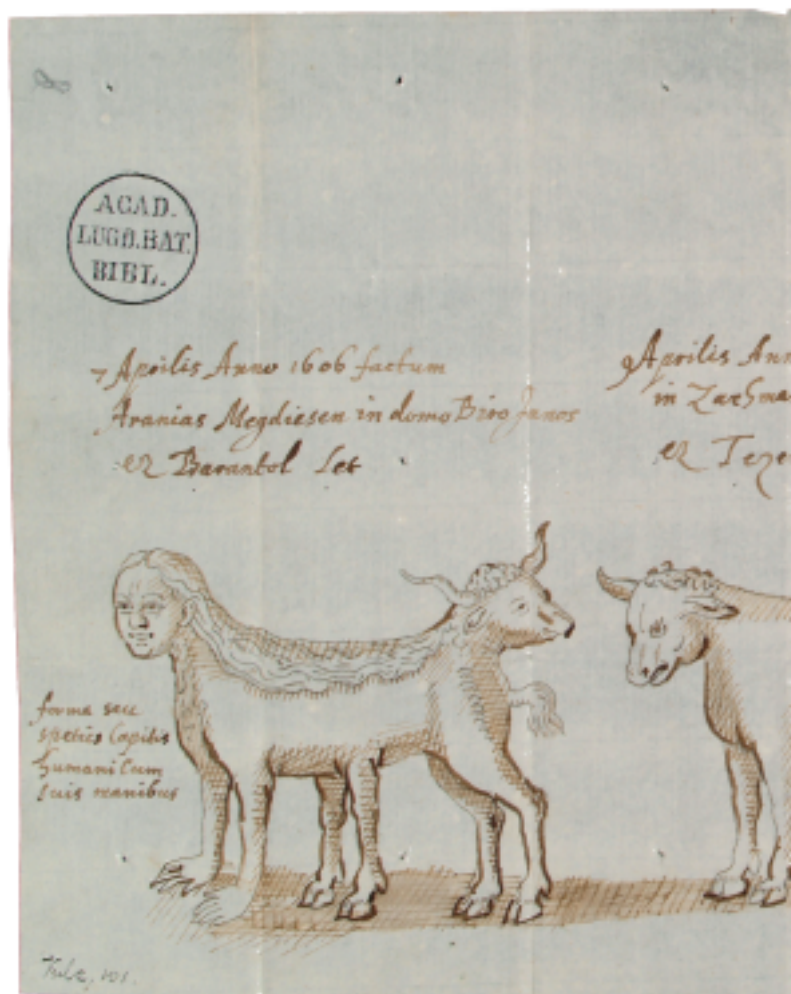 ACAD.
LUGD. BAT.
BIBL.
7 Aprilis Anno 1606 factum
Aranias Megdiesen in domo Biro Janos
ex Barantol Let
9 Aprilis Ann
in
ex
forma seu
Capitis
humani Cum
suis manibus
101.